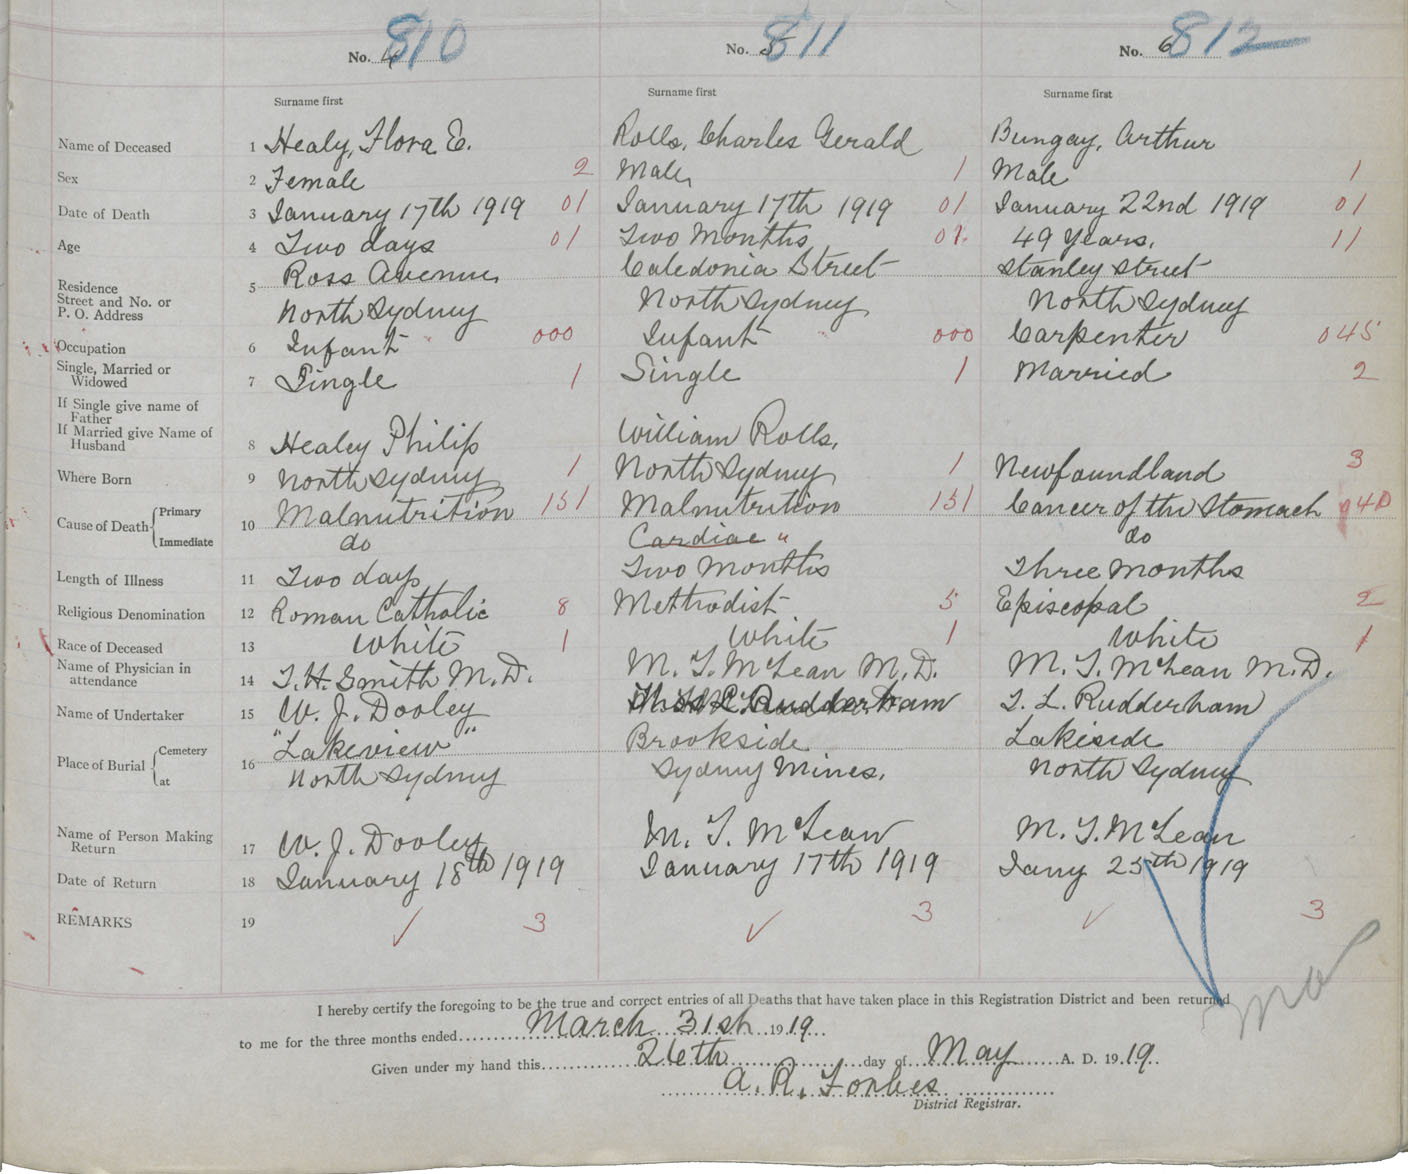 No. 4 810 No. 5 811 No. 6 812
Surname first Surname first Surname first
Name of Deceased 1 Healy, Flora E. Rolls, Charles Gerald Bungay, Arthur
Sex 2 Female 2 Male 1 Male 1
Date of Death 3 January 17th 1919 01 January 17th 1919 01 January 22nd 1919 01
Age 4 Two days 01 Two Months 01 49 Years. 11
Residence
Street and No. or
P. O. Address
5 Ross Avenue Caledonia Street Stanley Street
North Sydney North Sydney North Sydney
Occupation 6 Infant 000 Infant 000 Carpenter 045
Single, Married or
Widowed
7 Single 1 Single 1 Married 2
If Single give name of
Father
If Married give Name of
Husband
8 Healey Philip William Rolls.
Where Born 9 North Sydney 1 North Sydney 1 Newfoundland 3
Cause of Death Primary
Immediate
10 Malnutrition 151 Malnutrition 151 Cancer of the Stomach 040
do Cardiac " do
Length of Illness 11 Two days Two Months Three Months
Religious Denomination 12 Roman Catholic 8 Methodist 5 Episcopal 2
Race of Deceased 13 White 1 White 1 White 1
Name of Physician in
attendance
14 T. H. Smith M. D. M. T. McLean M. D. M. T. McLean M. D.
Name of Undertaker 15 W. J. Dooley Rudderham T. L. Rudderham
Place of Burial Cemetery
at
16 "Lakeview" Brookside Lakeside
North Sydney Sydney Mines. North Sydney
Name of Person Making
Return
17 W. J. Dooley M. T. McLean M. T. McLean
Date of Return 18 January 18th 1919 January 17th 1919 Jany 25th 1919
REMARKS 19 ✓ 3 ✓ 3 ✓ 3
I hereby certify the foregoing to be the true and correct entries of all Deaths that have taken place in this Registration District and been returned
to me for the three months ended March 31st 1919.
Given under my hand this 26th day of May A. D. 1919.
A. R. Forbes
District Registrar.